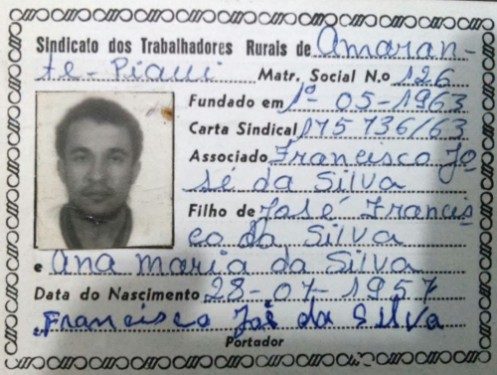 Sindicato dos Trabalhadores Rurais de Amaran-
te-Piaui Matr. Social N.o 126
Fundado em 1º-05-1963
Carta Sindical 175 736/63
Associado Francisco Jo
sé da Silva
Filho de José Francis
co da Silva
e Ana maria da Silva
Data do Nascimento 28-07-1957
Francisco José da Silva
Portador